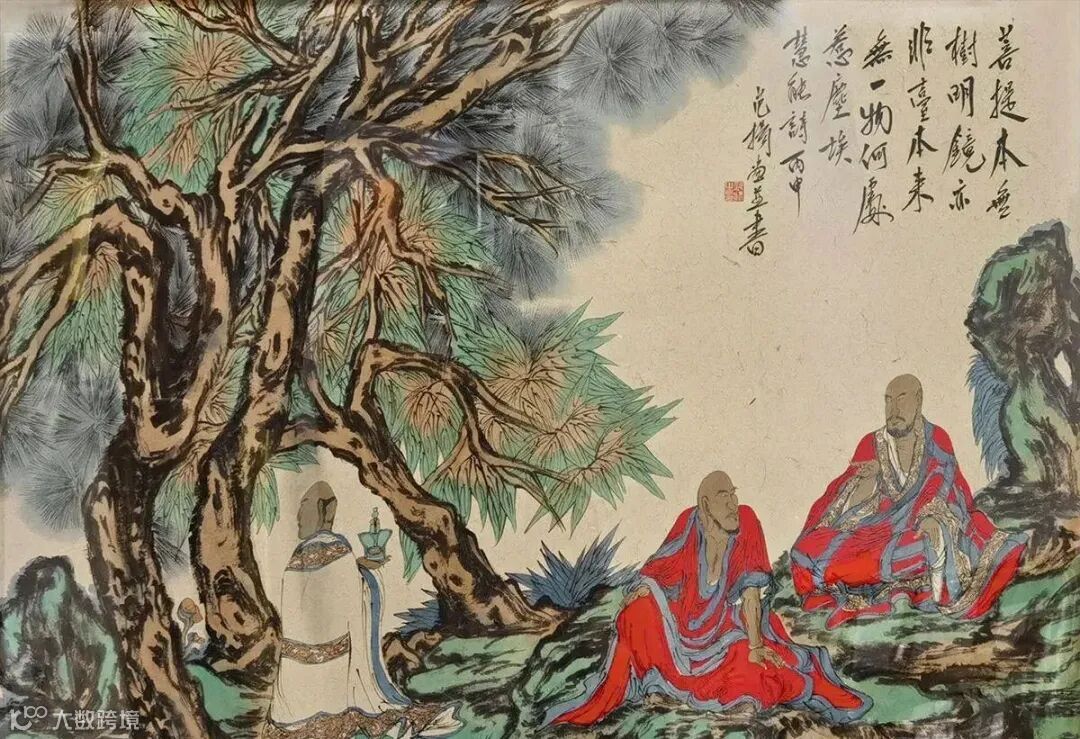 菩提本無
樹明鏡亦
非臺本来
無一物何處
惹塵埃
慧能詩丙申
范揚画並書
大数跨境